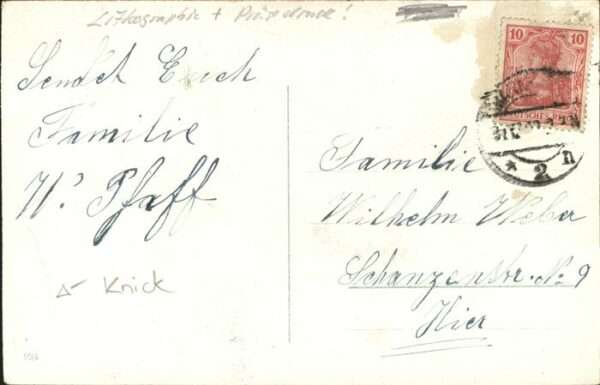 Lithographie + Prägedruck!
10 10
Sendet Euch
Familie
W. Pfaff
Knick
Familie
Wilhelm Weber
Schanzenstr. No 9
Hier
2 n